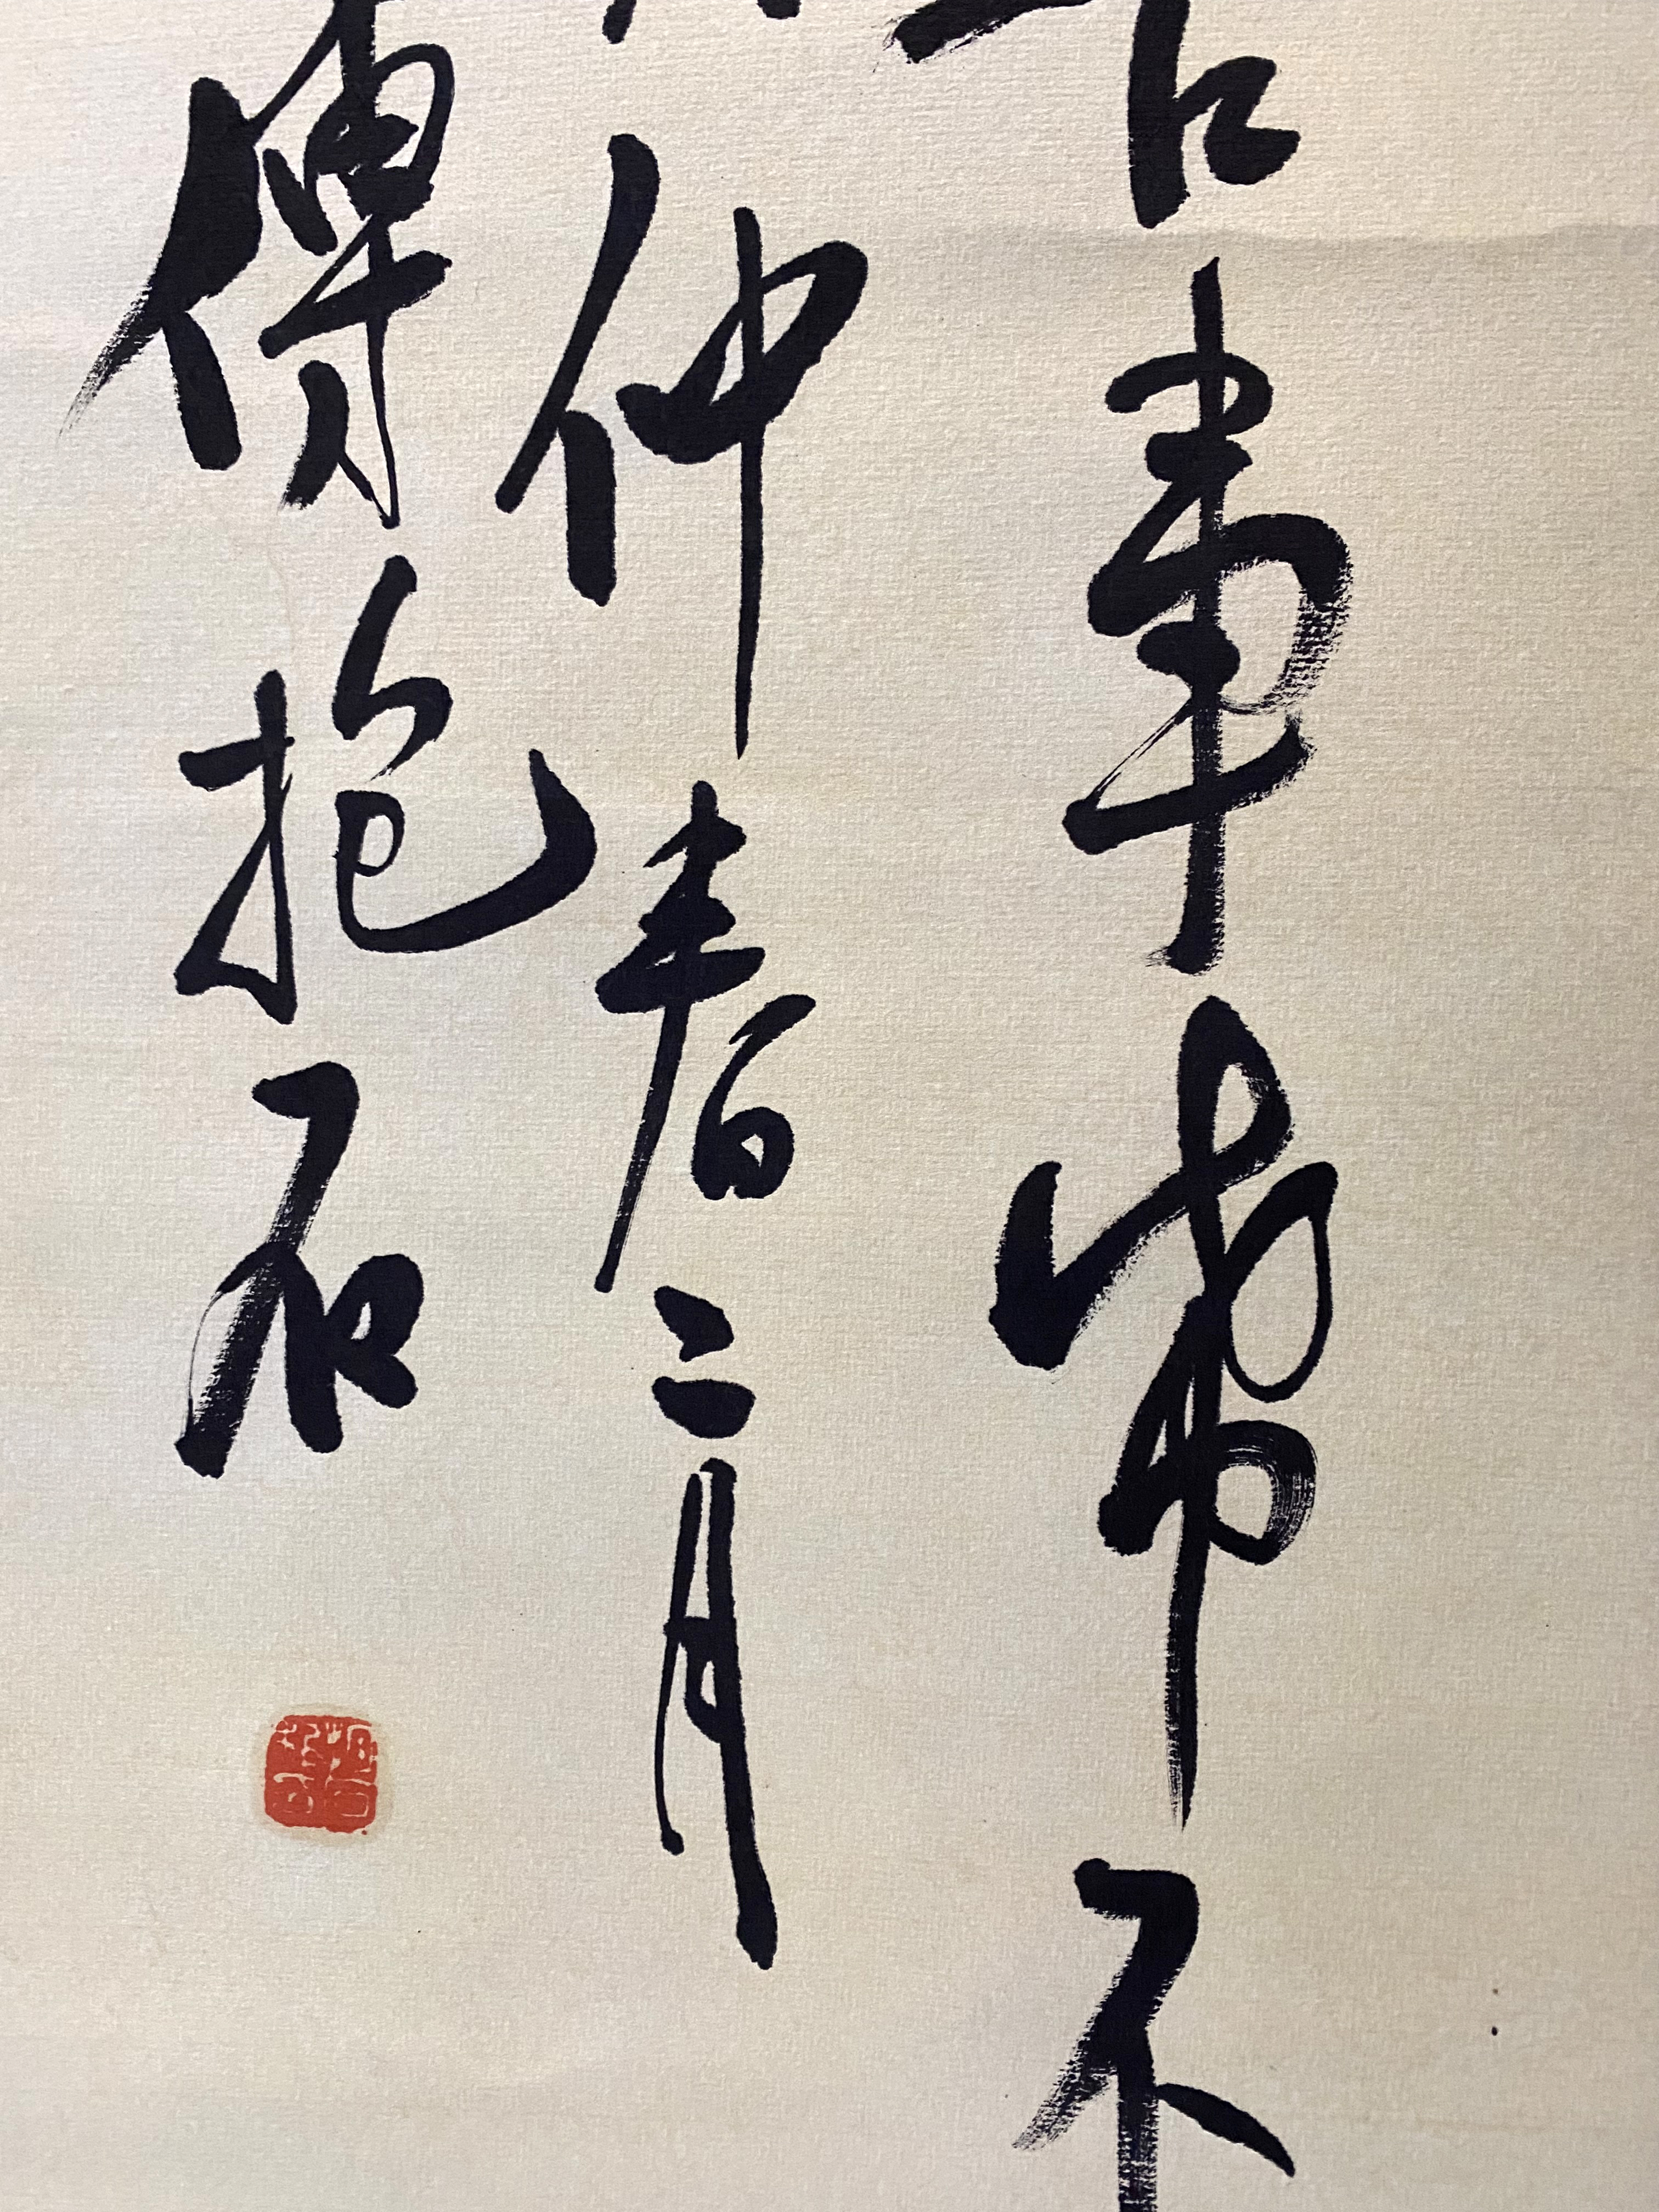 常不
仲春二月
傅抱石